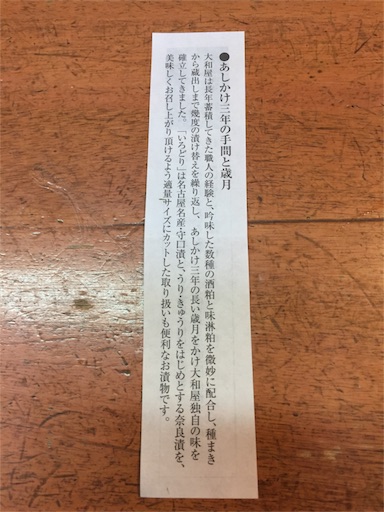 ●あしかけ三年の手間と歳月
大和屋は長年蓄積してきた職人の経験と、吟味した数種の酒粕と味淋粕を微妙に配合し、種まき
から蔵出しまで幾度の漬け替えを繰り返し、あしかけ三年の長い歳月をかけ大和屋独自の味を
確立してきました。「いろどり」は名古屋名産・守口漬と、うり・きゅうりをはじめとする奈良漬を、
美味しくお召し上がり頂けるよう適量サイズにカットした取り扱いも便利なお漬物です。